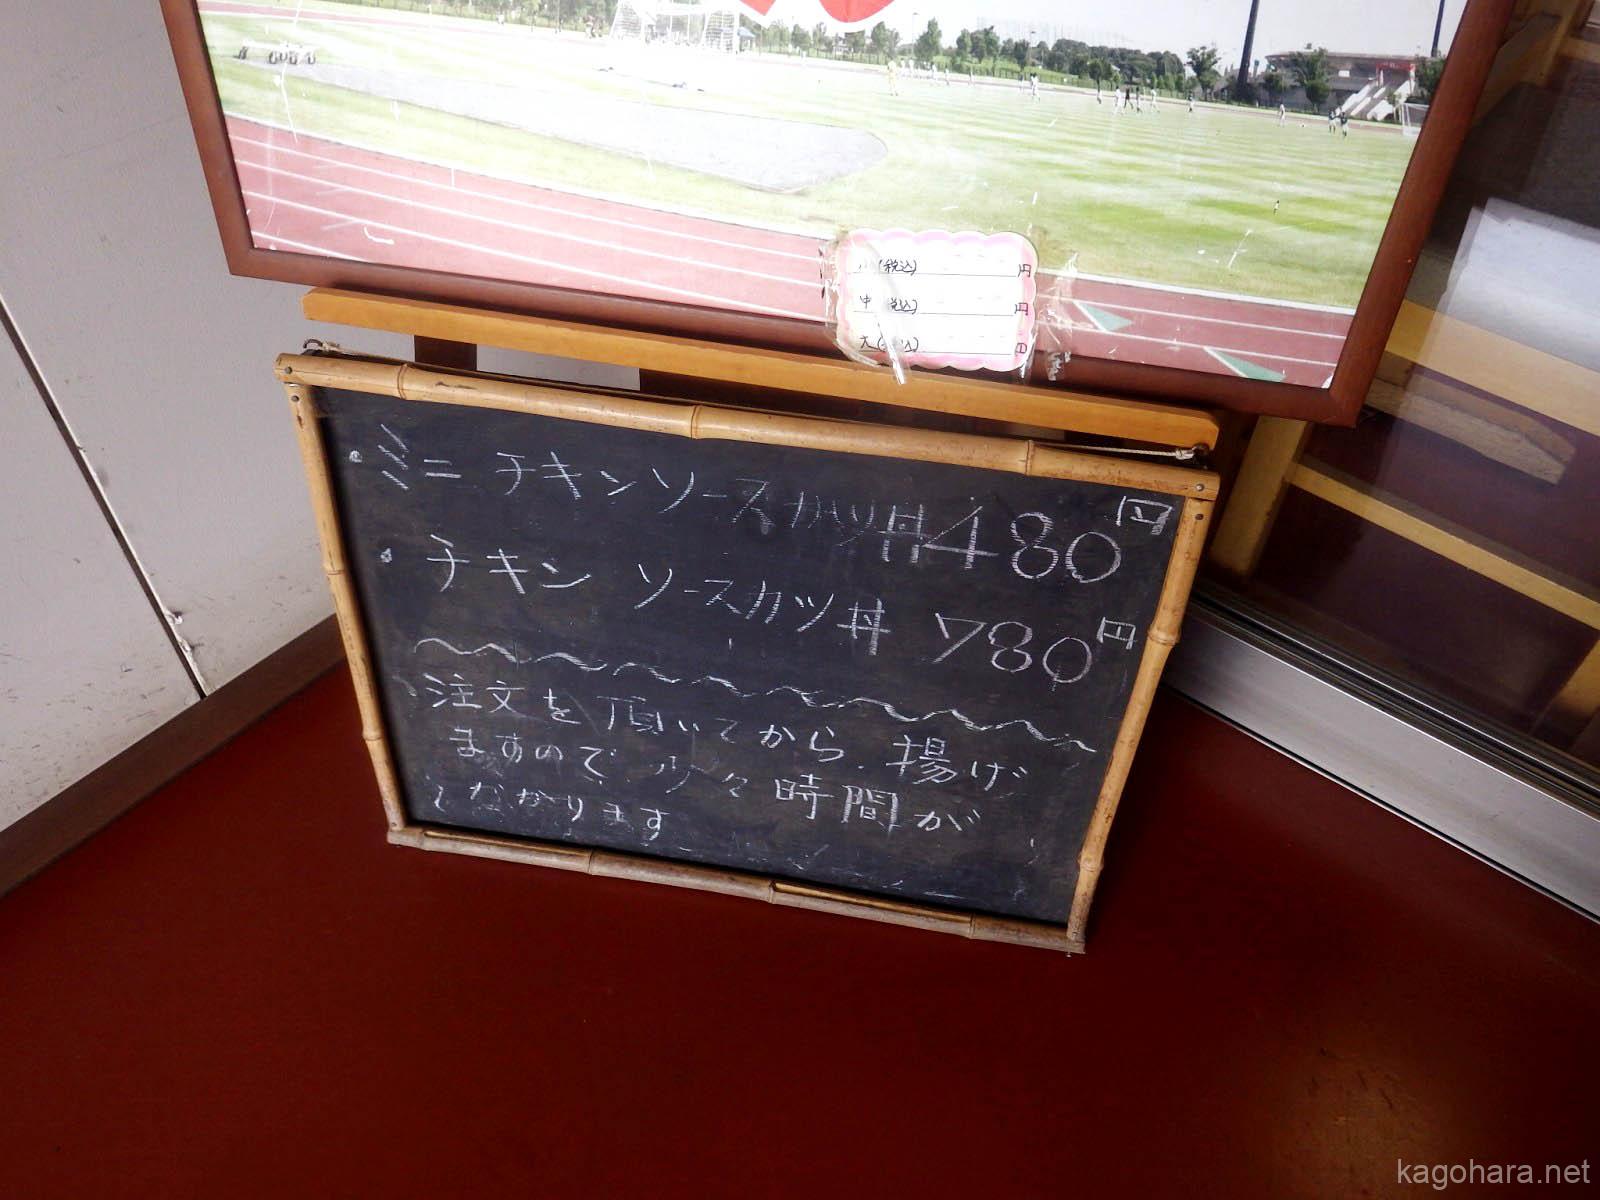 小(税込) 円
中(税込) 円
大(税込) 円
・ミニ チキンソースカツ丼 480円
・チキン ソースカツ丼 780円
注文を頂いてから、揚げ
ますので 少々時間が
かかります
kagohara.net